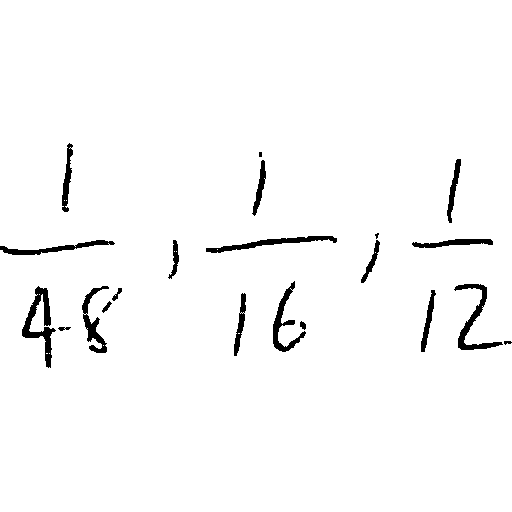 \frac{1}{48}, \frac{1}{16}, \frac{1}{12}